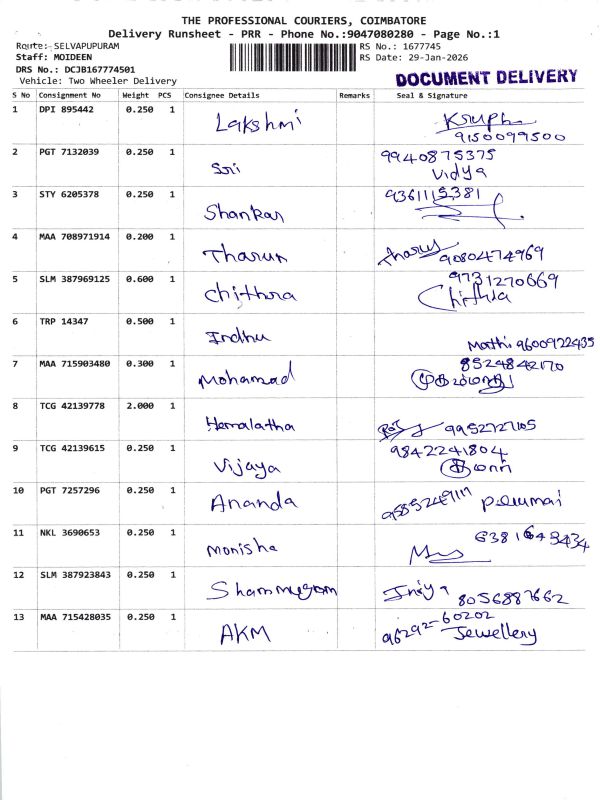 THE PROFESSIONAL COURIERS, COIMBATORE
Delivery Runsheet - PRR - Phone No.:9047080280 - Page No.:1
Route:- SELVAPUPURAM
RS No.: 1677745
Staff: MOIDEEN
RS Date: 29-Jan-2026
DRS No.: DCJB167774501
Vehicle: Two Wheeler Delivery
DOCUMENT DELIVERY
S No Consignment No Weight PCS Consignee Details Remarks Seal & Signature
1 DPI 895442 0.250 1 Lakshmi Krupha
9150099500
2 PGT 7132039 0.250 1 Sri 9940875375
Vidya
3 STY 6205378 0.250 1 Shankar 9361115381
4 MAA 708971914 0.200 1 Tharun Tharus 9080474969
5 SLM 387969125 0.600 1 Chithra 9731270669
Chithra
6 TRP 14347 0.500 1 Indhu Mathi 9600922435
7 MAA 715903480 0.300 1 Mohamad 8524842170
8 TCG 42139778 2.000 1 Hemalatha Raj 9952727105
9 TCG 42139615 0.250 1 Vijaya 9842241804
10 PGT 7257296 0.250 1 Ananda Perumai
11 NKL 3690653 0.250 1 Monisha 6381643434
12 SLM 387923843 0.250 1 Shanmugam Iniya 8056887662
13 MAA 715428035 0.250 1 AKM 96292-60202
Jewellery